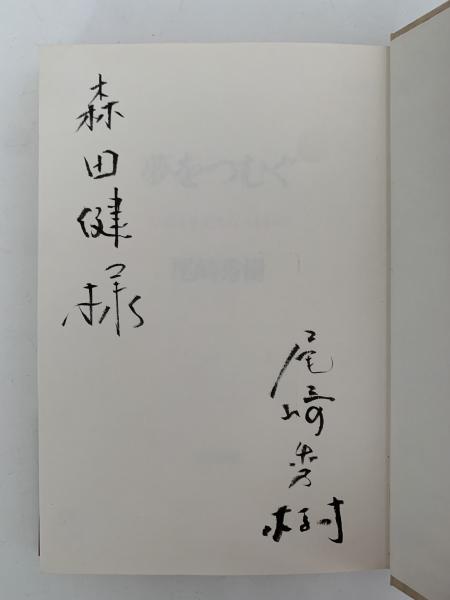 森田健様
尾崎秀樹
夢をつむぐ
尾崎秀樹